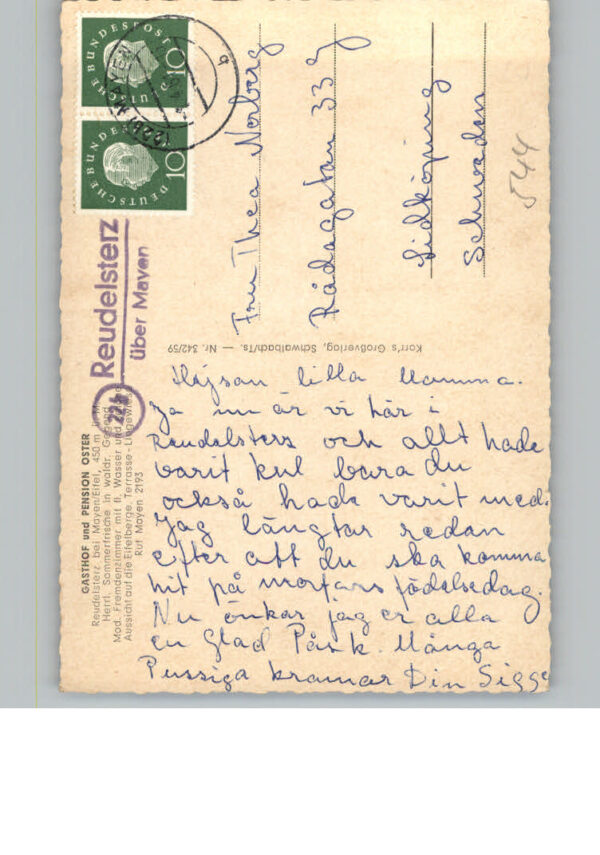 Hejsan lilla Mamma.
Ja nu är vi här i
Reudelsterz och allt hade
varit kul bara du
också hade varit med.
Jag längtar redan
efter att du ska komma
hit på morfars födelsedag.
Nu önkar jag er alla
en Glad Påsk. Många
Pussiga kramar Din Sigge
Fru Thea Norberg
Rådagatan 33
Lidköping
Schweden
544
GASTHOF und PENSION OSTER
Reudelsterz bei Mayen/Eifel, 450 m ü. M.
Herrl. Sommerfrische in waldr. Gegend
Mod. Fremdenzimmer mit fl. Wasser und
Aussicht auf die Eifelberge, Terrasse - Liegewiese
Ruf Mayen 2193
Korr's Großverlag, Schwalbach/Ts. — Nr. 342/59
22b
Reudelsterz
über Mayen
DEUTSCHE BUNDESPOST
10
DEUTSCHE BUNDESPOST
10
MAYEN
b